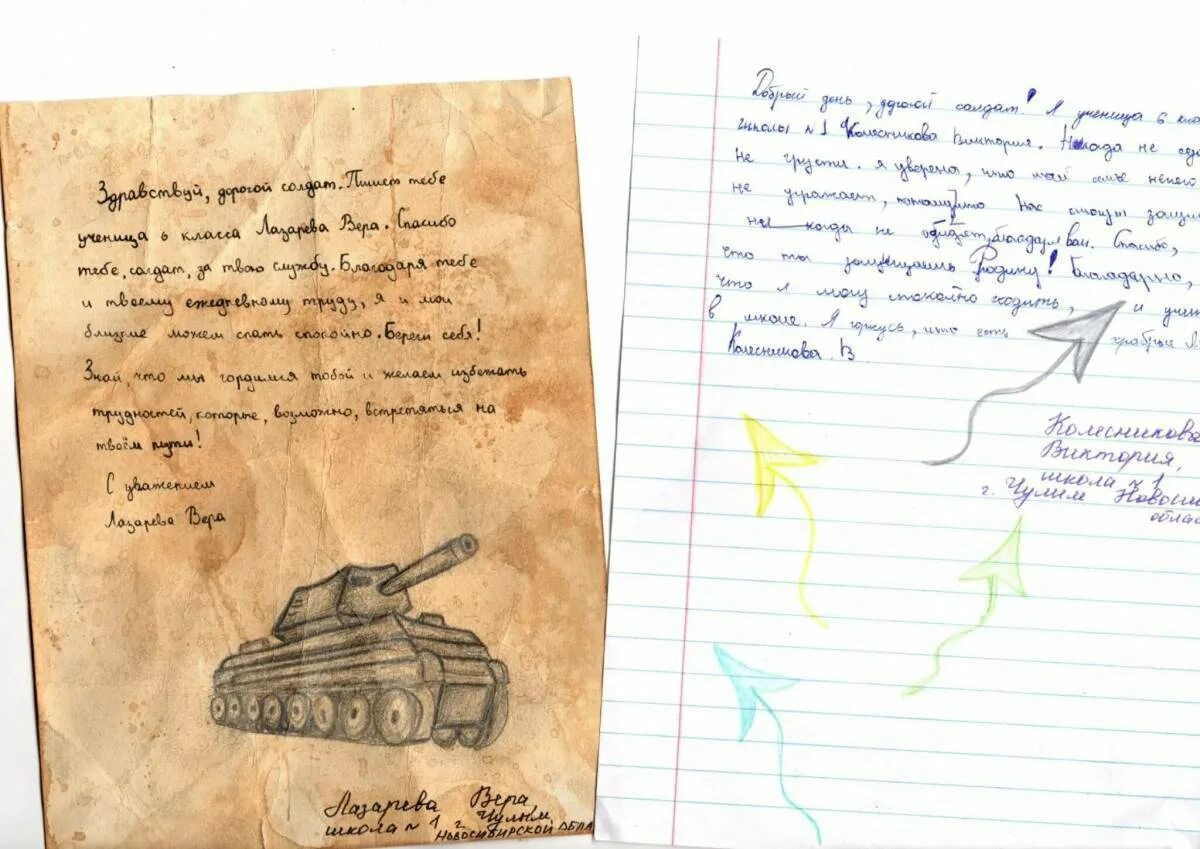 Здравствуй, дорогой солдат. Пишет тебе
ученица 6 класса Лазарева Вера. Спасибо
тебе, солдат, за твою службу. Благодаря тебе
и твоему ежедневному труду, я и мои
близкие можем спать спокойно. Береги себя!
Знай, что мы гордимся тобой и желаем избежать
трудностей, которые, возможно, встретяться на
твоём пути!
С уважением
Лазарева Вера
Лазарева Вера,
школа №1 г. Чулым
Новосибирской обла
Добрый день, дорогой солдат! Я ученица 6 кла
школы №1 Колесникова Виктория. Никогда не
не грусти. Я уверена, что моей семье нечего
не угражает, потомучто нас стоит защи
ны когда не обидят, благодаря вам. Спасибо,
что ты защищаешь Родину! Благодарю,
что я могу спокойно ходить, и учит
в школе. Я горжусь, что есть храбрые
Колесникова В
Колесникова
Виктория,
школа №1
г. Чулым Новоси
облас